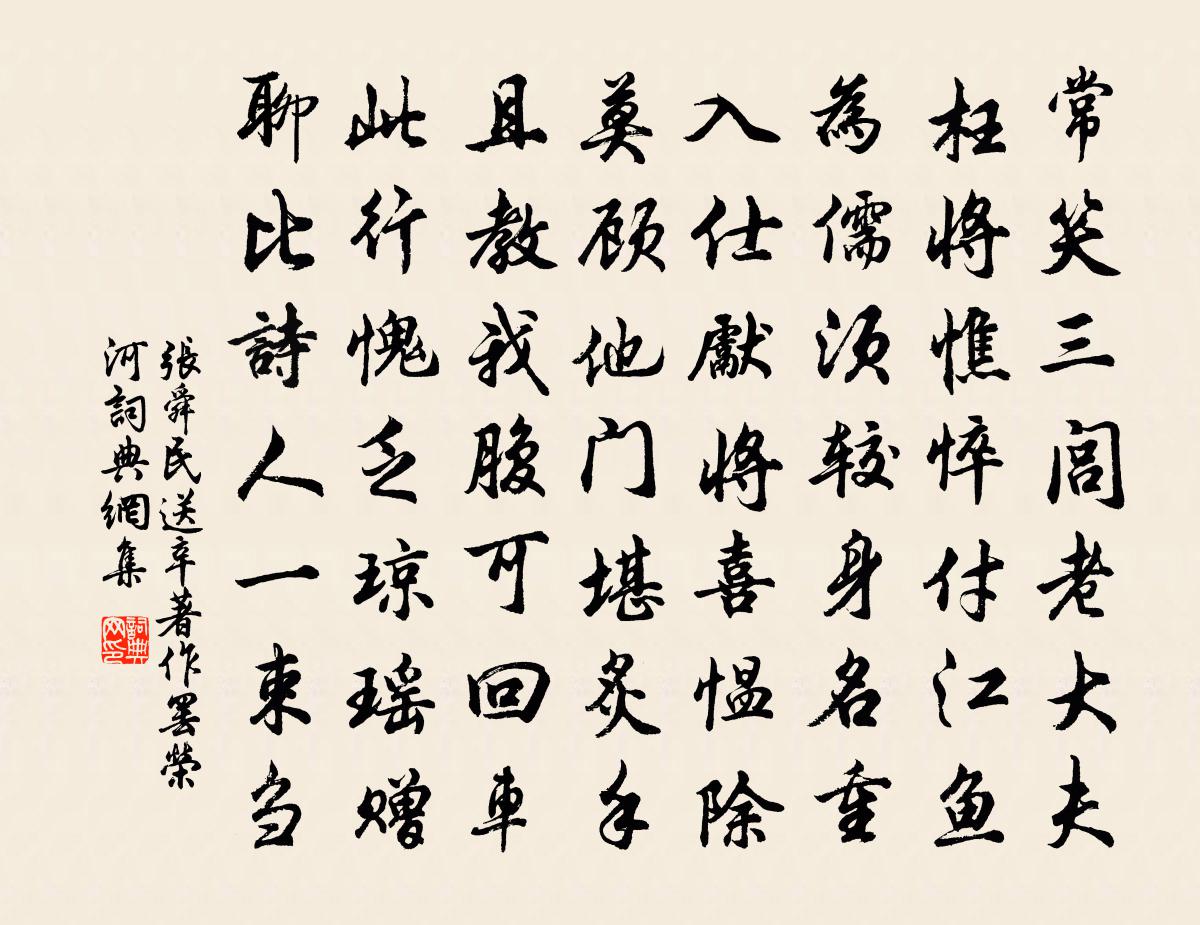 常笑三閭老大夫
枉将憔悴付江鱼
為儒须较身名重
入仕獻将喜愠除
莫顾他门堪炙手
且教我腹可回車
此行愧乏琼瑶赠
聊比詩人一束刍
張舜民送辛著作罢榮
河詞典網集
詞典网印